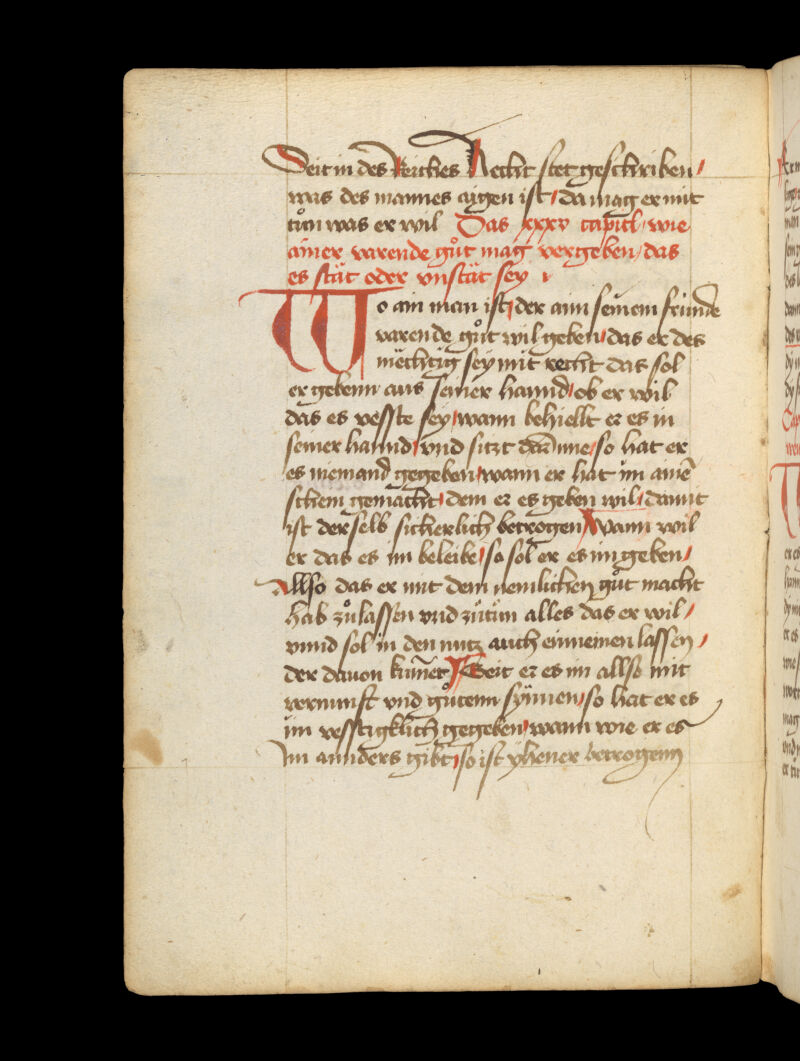 Seit in des Reiches Recht stet geschriben /
was des mannes aigen ist / da mag er mit
tůn was er wil Das xxxv capitl / wie
ainer varende gůt mag vergeben / das
es stät oder vnstät sey
Wo ain man ist / der ainn seinem fründe
varende gůt wil geben / das er des
mëchtig sey mit recht das sol
er gebenn aus seiner hannd / ob er wil
das es vesste sey / wann behiellt er es in
seiner hannd / vnd sitzt darinne / so hat er
es niemand gegeben / wann er hat im ainē
schem gemacht / dem er es geben wil / damit
ist derselb sicherlich betrogen / Wann wil
er das es im beleibe / so sol er es im geben /
Allso das er mit dem nemlichen gůt macht
hab zůlassen vnd zůtůn alles das er wil /
vnnd sol in den nutz auch einnemen lassen /
der dauon kūmet / Geit er es im allso mit
vernunft vnd gůtenn synnen / so hat er es
im vesstigklich gegeben / wann wie er es
Im annders gibt / so ist yhener betrogenn